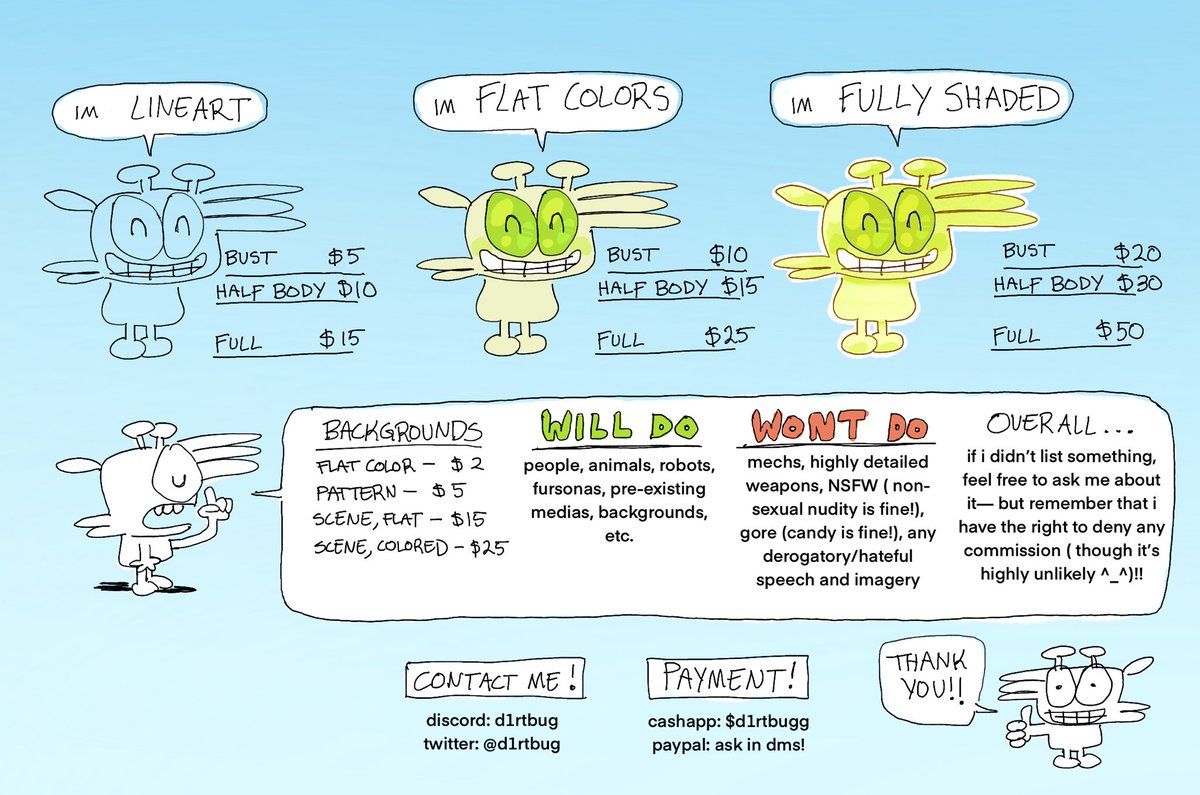 IM LINEART
IM FLAT COLORS
IM FULLY SHADED
BUST $5
HALF BODY $10
FULL $15
BUST $10
HALF BODY $15
FULL $25
BUST $20
HALF BODY $30
FULL $50
BACKGROUNDS
FLAT COLOR — $2
PATTERN — $5
SCENE, FLAT — $15
SCENE, COLORED — $25
WILL DO
people, animals, robots,
fursonas, pre-existing
medias, backgrounds,
etc.
WONT DO
mechs, highly detailed
weapons, NSFW ( non-
sexual nudity is fine!),
gore (candy is fine!), any
derogatory/hateful
speech and imagery
OVERALL...
if i didn’t list something,
feel free to ask me about
it— but remember that i
have the right to deny any
commission ( though it’s
highly unlikely ^_^)!!
CONTACT ME!
discord: d1rtbug
twitter: @d1rtbug
PAYMENT!
cashapp: $d1rtbugg
paypal: ask in dms!
THANK
YOU!!